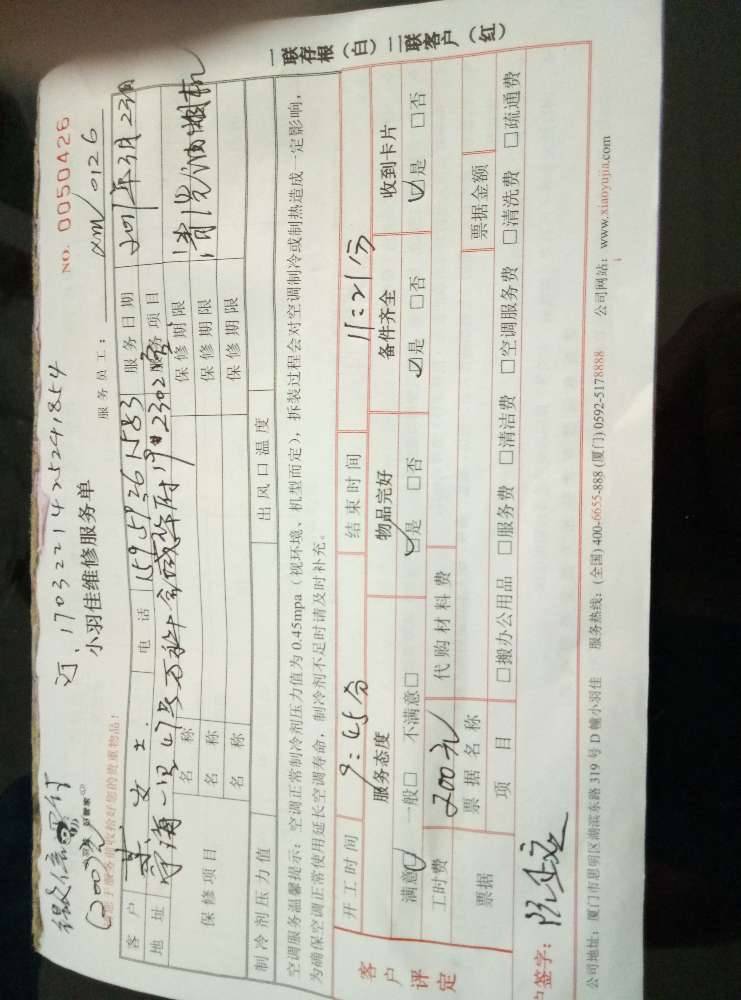 微信
(200元)
迈:1703221425241854
NO. 0050426
小羽佳维修服务单
服务员工: xm/0126
客户 女士. 电话 15959261583 服务日期 2017年3月23日
地址 宁海一里47号万科金域华府19#2302室 服务项目 清洗油烟机
保修项目 名称 保修期限
名称 保修期限
名称 保修期限
制冷剂压力值 出风口温度
空调服务温馨提示:空调正常制冷剂压力值为0.45mpa(视环境、机型而定),拆装过程会对空调制冷或制热造成一定影响,
为确保空调正常使用延长空调寿命,制冷剂不足时请及时补充。
开工时间 9:45分 结束时间 11:21分
客户评定 服务态度 物品完好 备件齐全 收到卡片
满意☑ 一般□ 不满意□ ☑是 □否 ☑是 □否 ☑是 □否
工时费 200元 代购材料费
票据 票据名称 票据金额
项目 □搬办公用品 □服务费 □清洁费 □空调服务费 □清洗费 □疏通费
户签字:
公司地址:厦门市思明区湖滨东路319号D幢小羽佳 服务热线:(全国)400-6655-888(厦门)0592-5178888 公司网站:www.xiaoyujia.com
一联存根(白)二联客户(红)